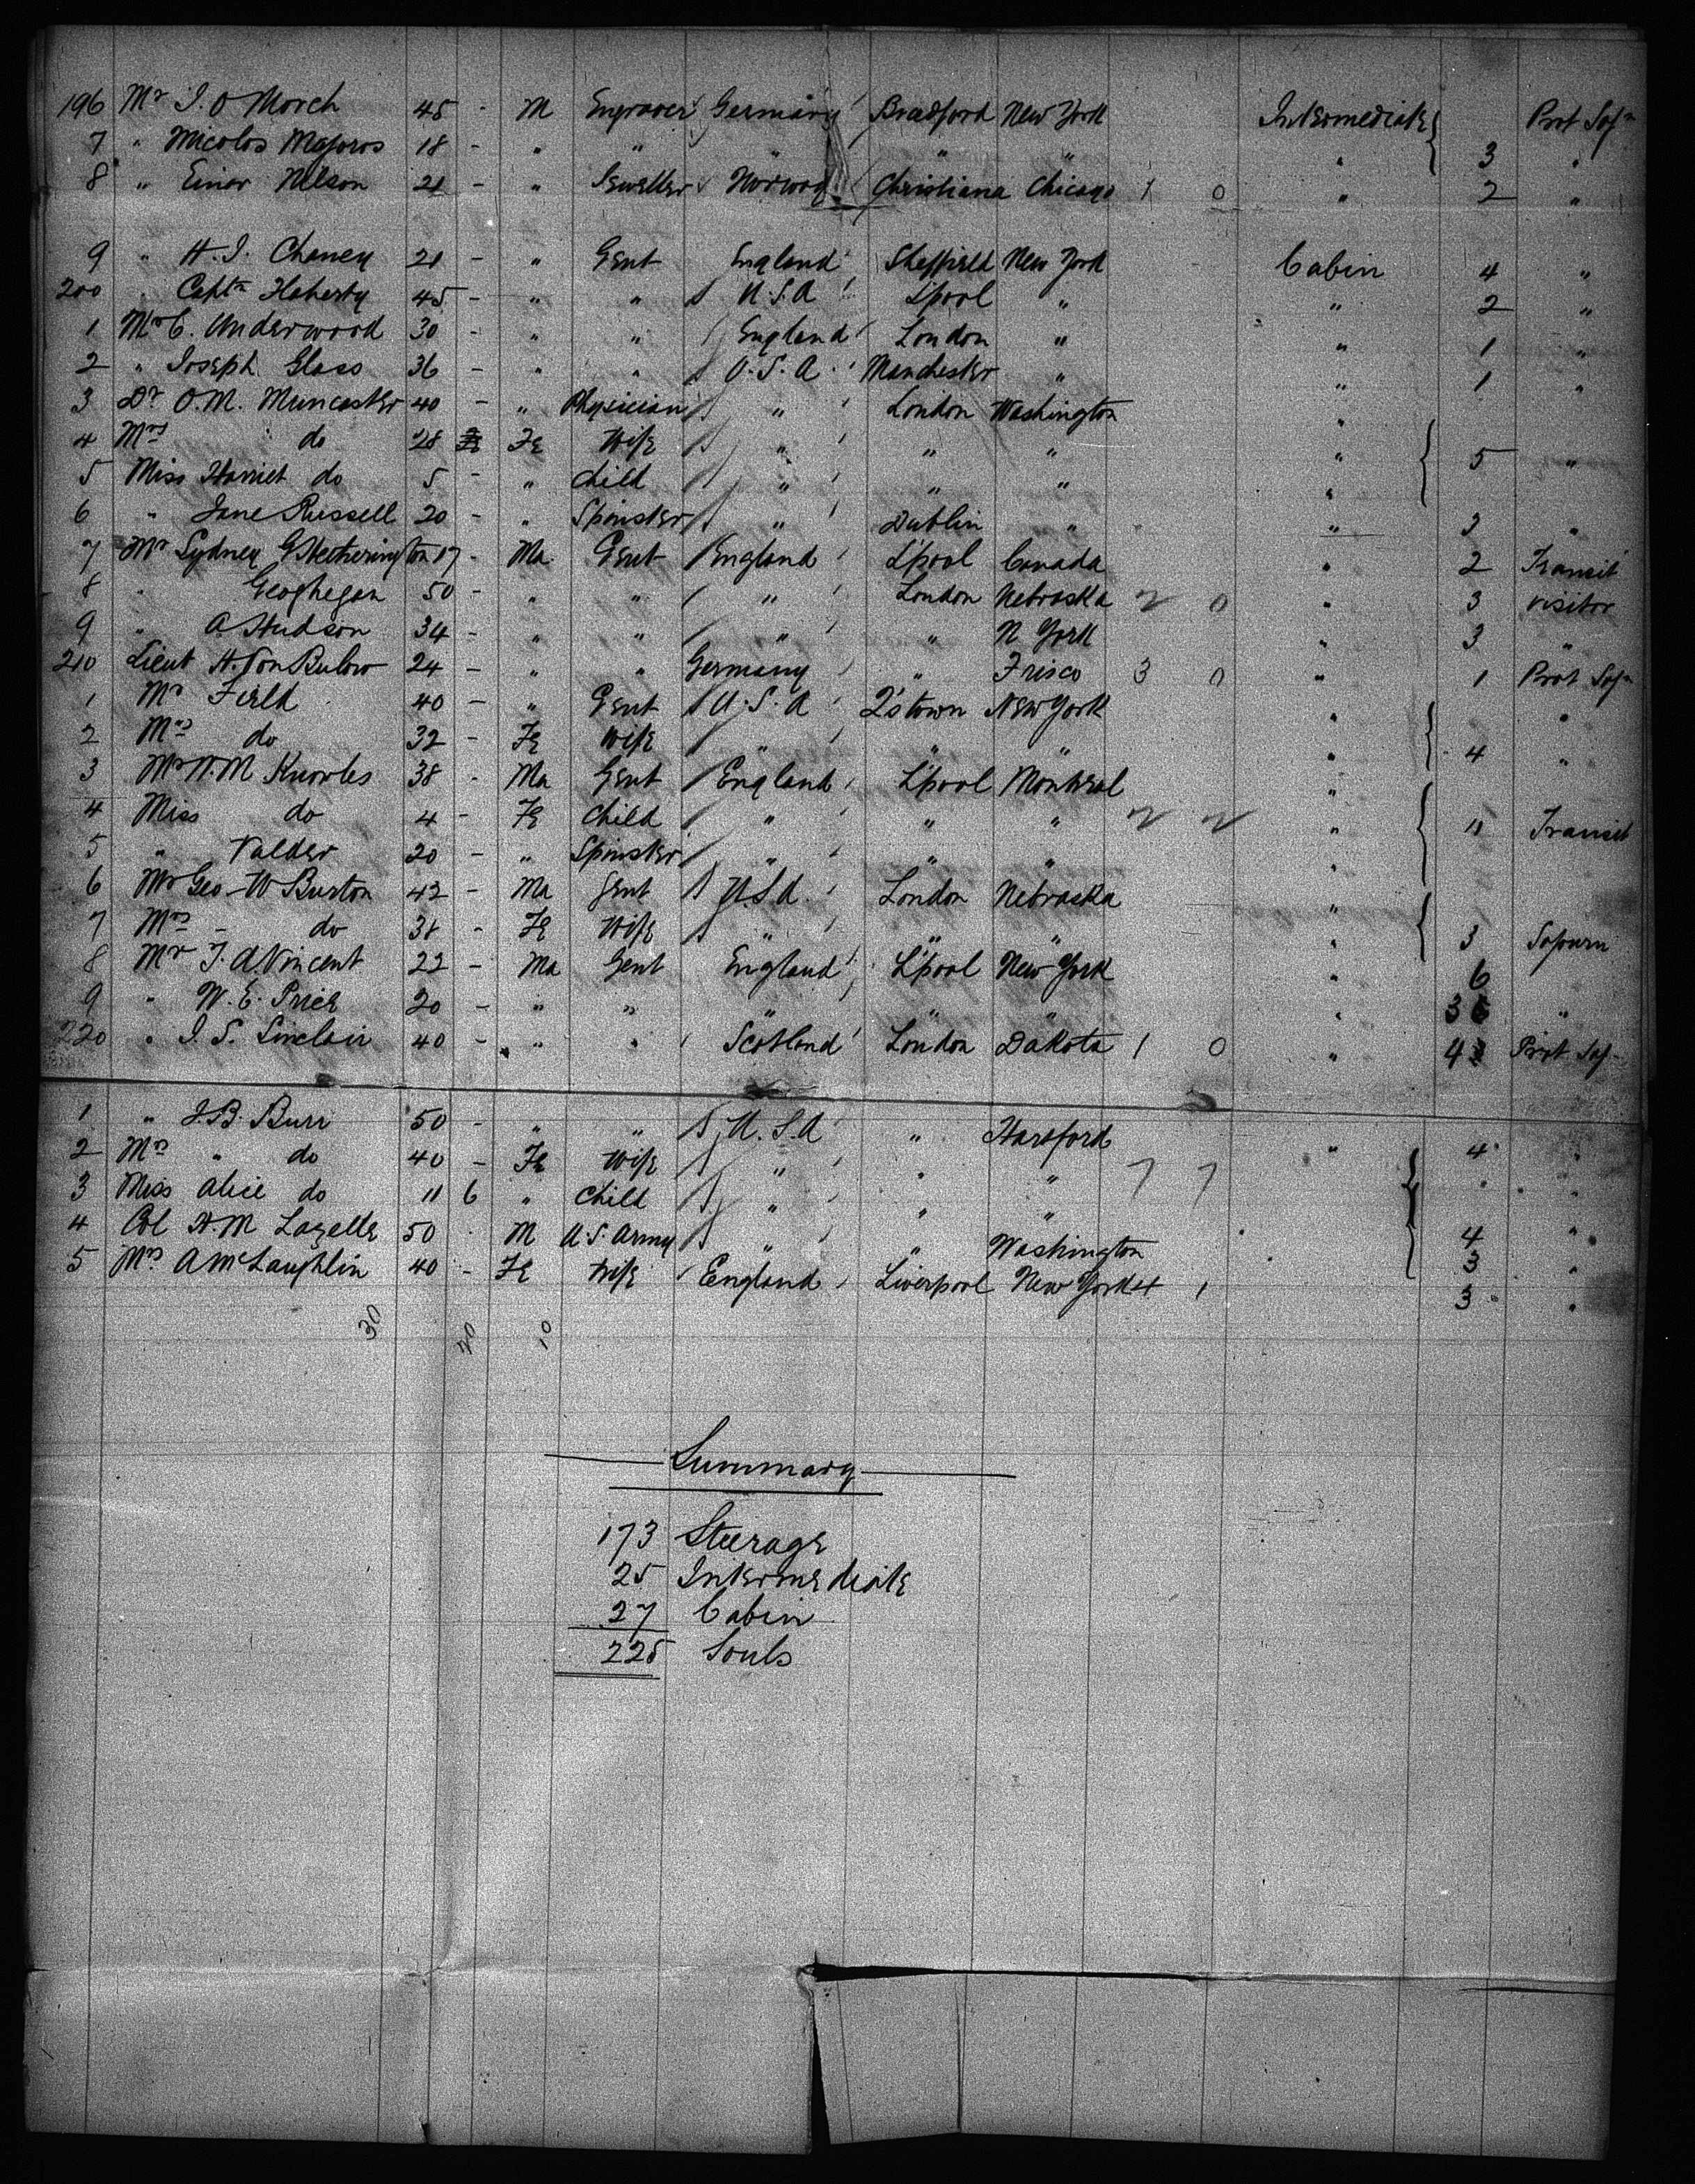 196 Mr J. O March 45 - M Engraver Germany Bradford New York Intermediate Prot Sojn
7 " Micolos Majoros 18 - " " " " " " 3 "
8 " Einar Nelson 21 - " Jeweller Norway Christiana Chicago 1 0 " 2 "
9 " H. J. Chaney 21 - " Gent England Sheffield New York Cabin 4 "
200 " Captn Flaherty 45 - " " U.S.A L'pool " " 2 "
1 Mr C. Underwood 30 - " " England London " " 1 "
2 " Joseph Glass 36 - " " U.S.A. Manchester " " 1 "
3 Dr O.M. Muncaster 40 - " Physician " London Washington "
4 Mrs do 28 Fe Wife " " " " 5 "
5 Miss Harriet do 5 - " Child " " " "
6 " Jane Russell 20 - " Spinster " Dublin " " 3 "
7 Mr Sydney G Hetherington 17 - Ma Gent England L'pool Canada " 2 Transit
8 " Geoghegan 50 - " " " London Nebraska 2 0 " 3 visitor
9 " A. Hudson 34 - " " " " N York " 3 "
210 Lieut H. Von Bulow 24 - " " Germany " Frisco 3 0 " 1 Prot Sojn
1 Mr Field 40 - " Gent U.S.A Q'stown New York " "
2 Mrs do 32 - Fe Wife " " " " 4 "
3 Mr W.M Knowles 38 - Ma Gent England L'pool Montreal "
4 Miss do 4 - Fe Child " " " 2 2 " 11 Transit
5 " Valder 20 - " Spinster " " " "
6 Mr Geo W Burton 42 - Ma Gent U.S.A. London Nebraska "
7 Mrs - do 38 - Fe Wife " " " " 3 Sojourn
8 Mr J. A. Vincent 22 - Ma Gent England L'pool New York " 6
9 " W. E. Price 20 - " " " " " " 3 "
220 " J. S. Sinclair 40 - " " Scotland London Dakota 1 0 " 4 Prot Soj
1 " J. B. Burr 50 - " " U.S.A " Hartford " 4 "
2 Mrs " do 40 - Fe Wife " " " 7 7 " "
3 Miss Alice do 11 6 " Child " " " "
4 Col H. M Lazelle 50 M U.S. Army " " Washington 4 "
5 Mrs A McLaughlin 40 - Fe Wife England Liverpool New York 4 1 3 "
3 "
30 10
Summary
173 Steerage
25 Intermediate
27 Cabin
225 Souls